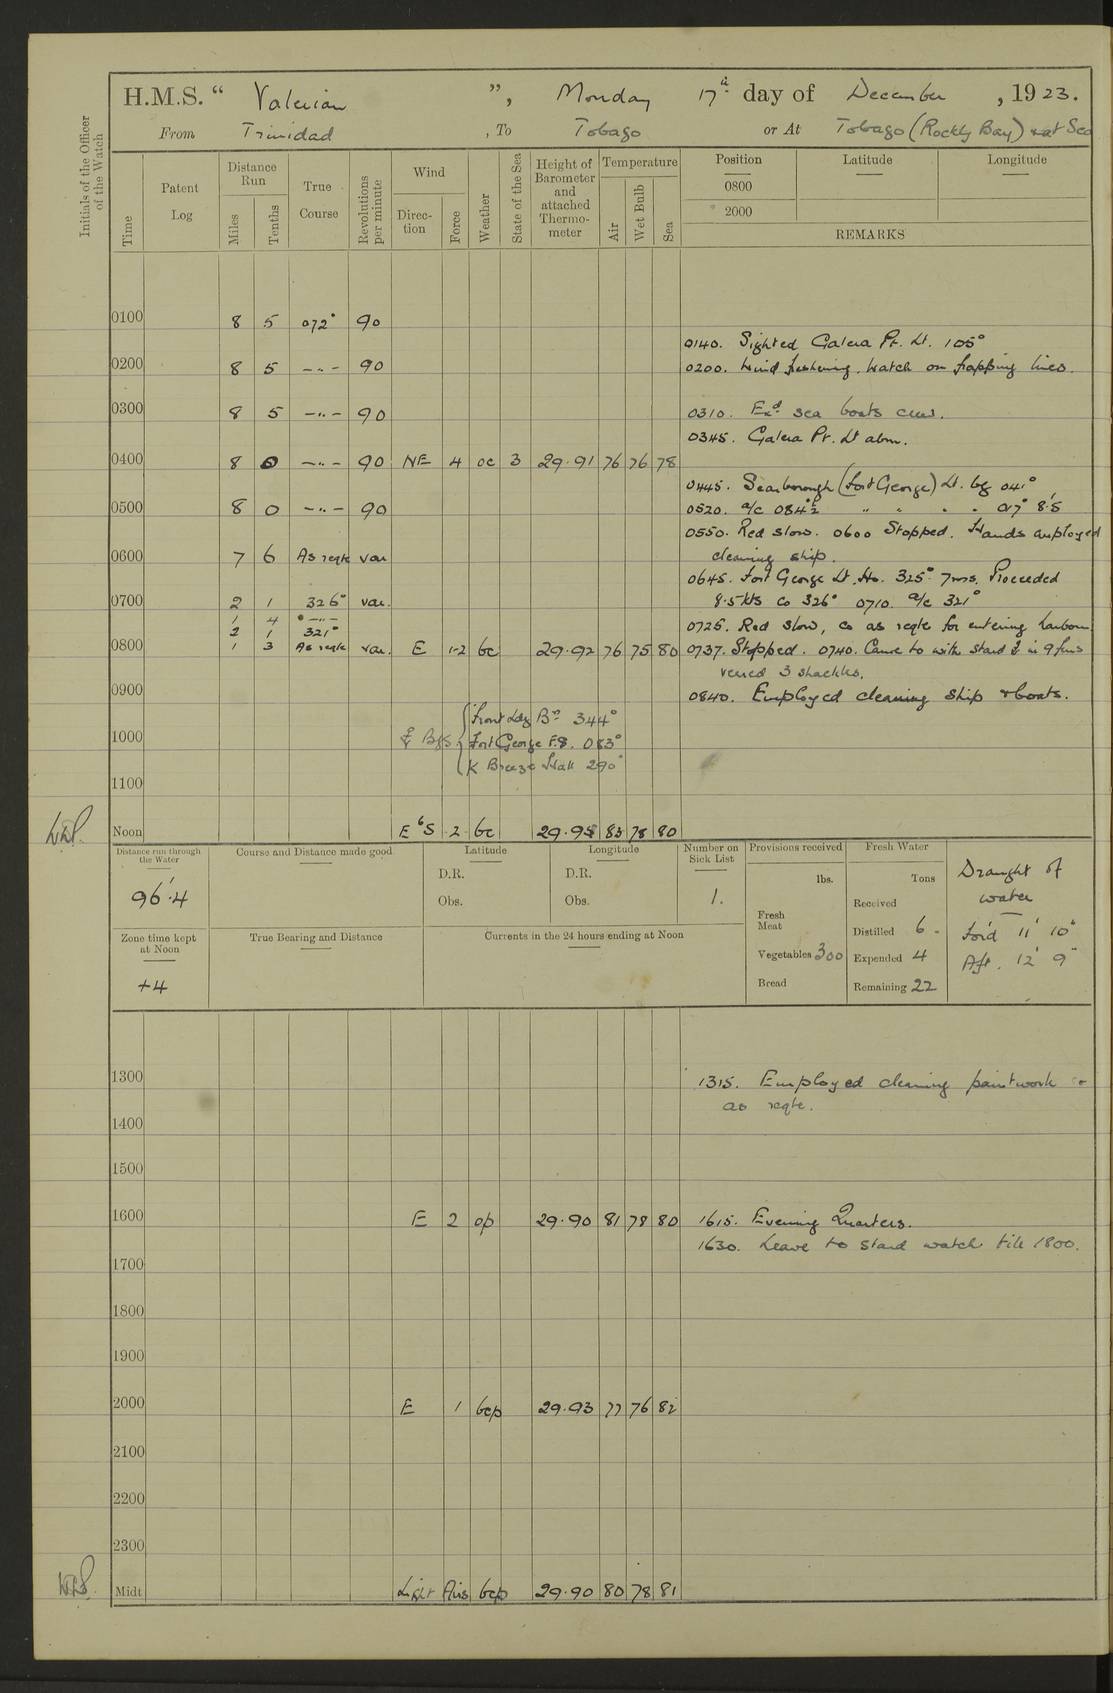 H.M.S. “ Valerian ”, Monday 17th day of December , 1923.
From Trinidad , To Tobago or At Tobago (Rockly Bay) & at Sea
Initials of the Officer of the Watch
Time
Patent Log
Distance Run
Miles
Tenths
True Course
Revolutions per minute
Wind
Direction
Force
Weather
State of the Sea
Height of Barometer and attached Thermometer
Temperature
Air
Wet Bulb
Sea
Position
Latitude
Longitude
0800
2000
REMARKS
0100 8 5 072° 90
0140. Sighted Galera Pt. Lt. 105°
0200 8 5 —"— 90 0200. Wind freshening. Watch on frapping lines.
0300 8 5 —"— 90 0310. Exd. sea boats crew.
0345. Galera Pt. Lt abm.
0400 8 0 —"— 90 NE 4 oc 3 29.91 76 76 78
0445. Scarborough (Fort George) Lt. bg 041°
0500 8 0 —"— 90 0520. a/c 084½° " " " " 017° 8.5'
0550. Red slow. 0600 Stopped. Hands employed
0600 7 6 As reqte var cleaning ship.
0645. Fort George Lt. Ho. 325° 7ms. Proceeded
0700 2 1 326° var. 8.5 kts Co 326° 0710. a/c 321°
1 4 —"—
2 1 321° 0725. Red slow, Co as reqte for entering harbour
0800 1 3 As reqte var. E 1-2 bc 29.92 76 75 80 0737. Stopped. 0740. Came to with stard ⚓ in 9 fms
veered 3 shackles.
0900 0840. Employed cleaning ship & boats.
Front Ldg Bn 344°
1000 ⚓ Bgs Fort George F.S. 083°
K Breeze Hall 290°
1100
Noon E b S 2 bc 29.95 83 78 80
Distance run through the Water
96'.4
Zone time kept at Noon
+4
Course and Distance made good
True Bearing and Distance
Latitude
D.R.
Obs.
Longitude
D.R.
Obs.
Currents in the 24 hours ending at Noon
Number on Sick List
1.
Provisions received
lbs.
Fresh Meat
Vegetables 300
Bread
Fresh Water
Tons
Received
Distilled 6 -
Expended 4
Remaining 22
Draught of
water
For'd 11' 10"
Aft. 12' 9"
1300 1315. Employed cleaning paintwork &
as reqte.
1400
1500
1600 E 2 op 29.90 81 78 80 1615. Evening Quarters.
1630. Leave to stard watch till 1800.
1700
1800
1900
2000 E 1 bcp 29.93 77 76 82
2100
2200
2300
Midt Light Airs bcp 29.90 80 78 81